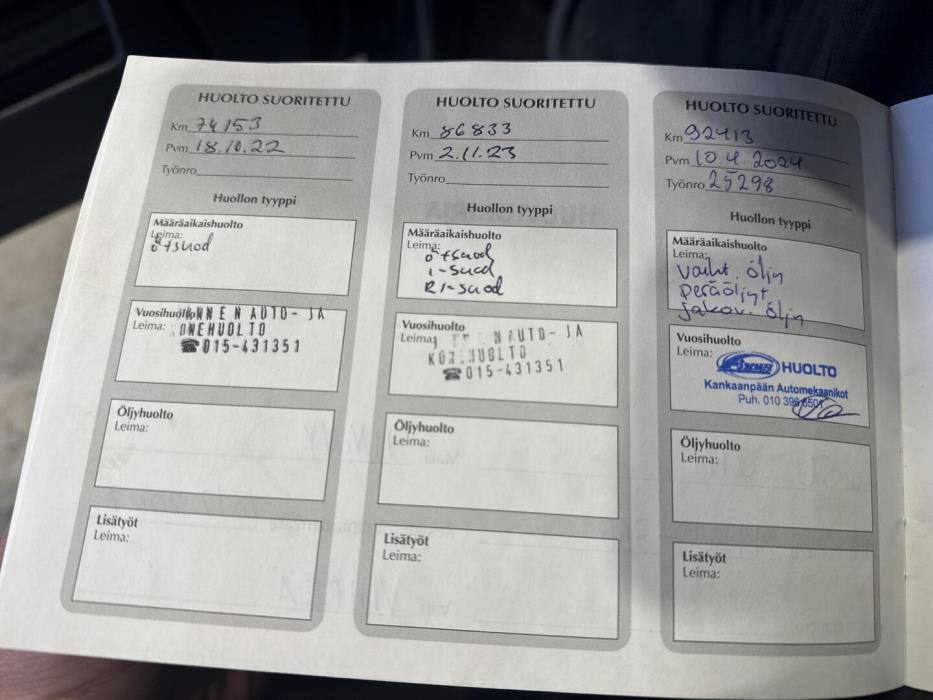 HUOLTO SUORITETTU
Km 74153
Pvm 18.10.22
Työnro
Huollon tyyppi
Määräaikaishuolto
Leima:
ö+suod
Vuosihuolto
NNEN AUTO- JA
Leima: ONEHUOLTO
☎015-431351
Öljyhuolto
Leima:
Lisätyöt
Leima:
HUOLTO SUORITETTU
Km 86833
Pvm 2.11.23
Työnro
Huollon tyyppi
Määräaikaishuolto
Leima:
ö+suod
i-suod
RI-suod
Vuosihuolto
Leima: N AUTO- JA
KORIHUOLTO
☎015-431351
Öljyhuolto
Leima:
Lisätyöt
Leima:
HUOLTO SUORITETTU
Km 92413
Pvm 10.4.2024
Työnro 25298
Huollon tyyppi
Määräaikaishuolto
Leima:
vaiht. öljy
peräöljyt
jakov. öljy
Vuosihuolto
Leima:
HUOLTO
Kankaanpään Automekaanikot
Puh. 010 398 6501
Öljyhuolto
Leima:
Lisätyöt
Leima: